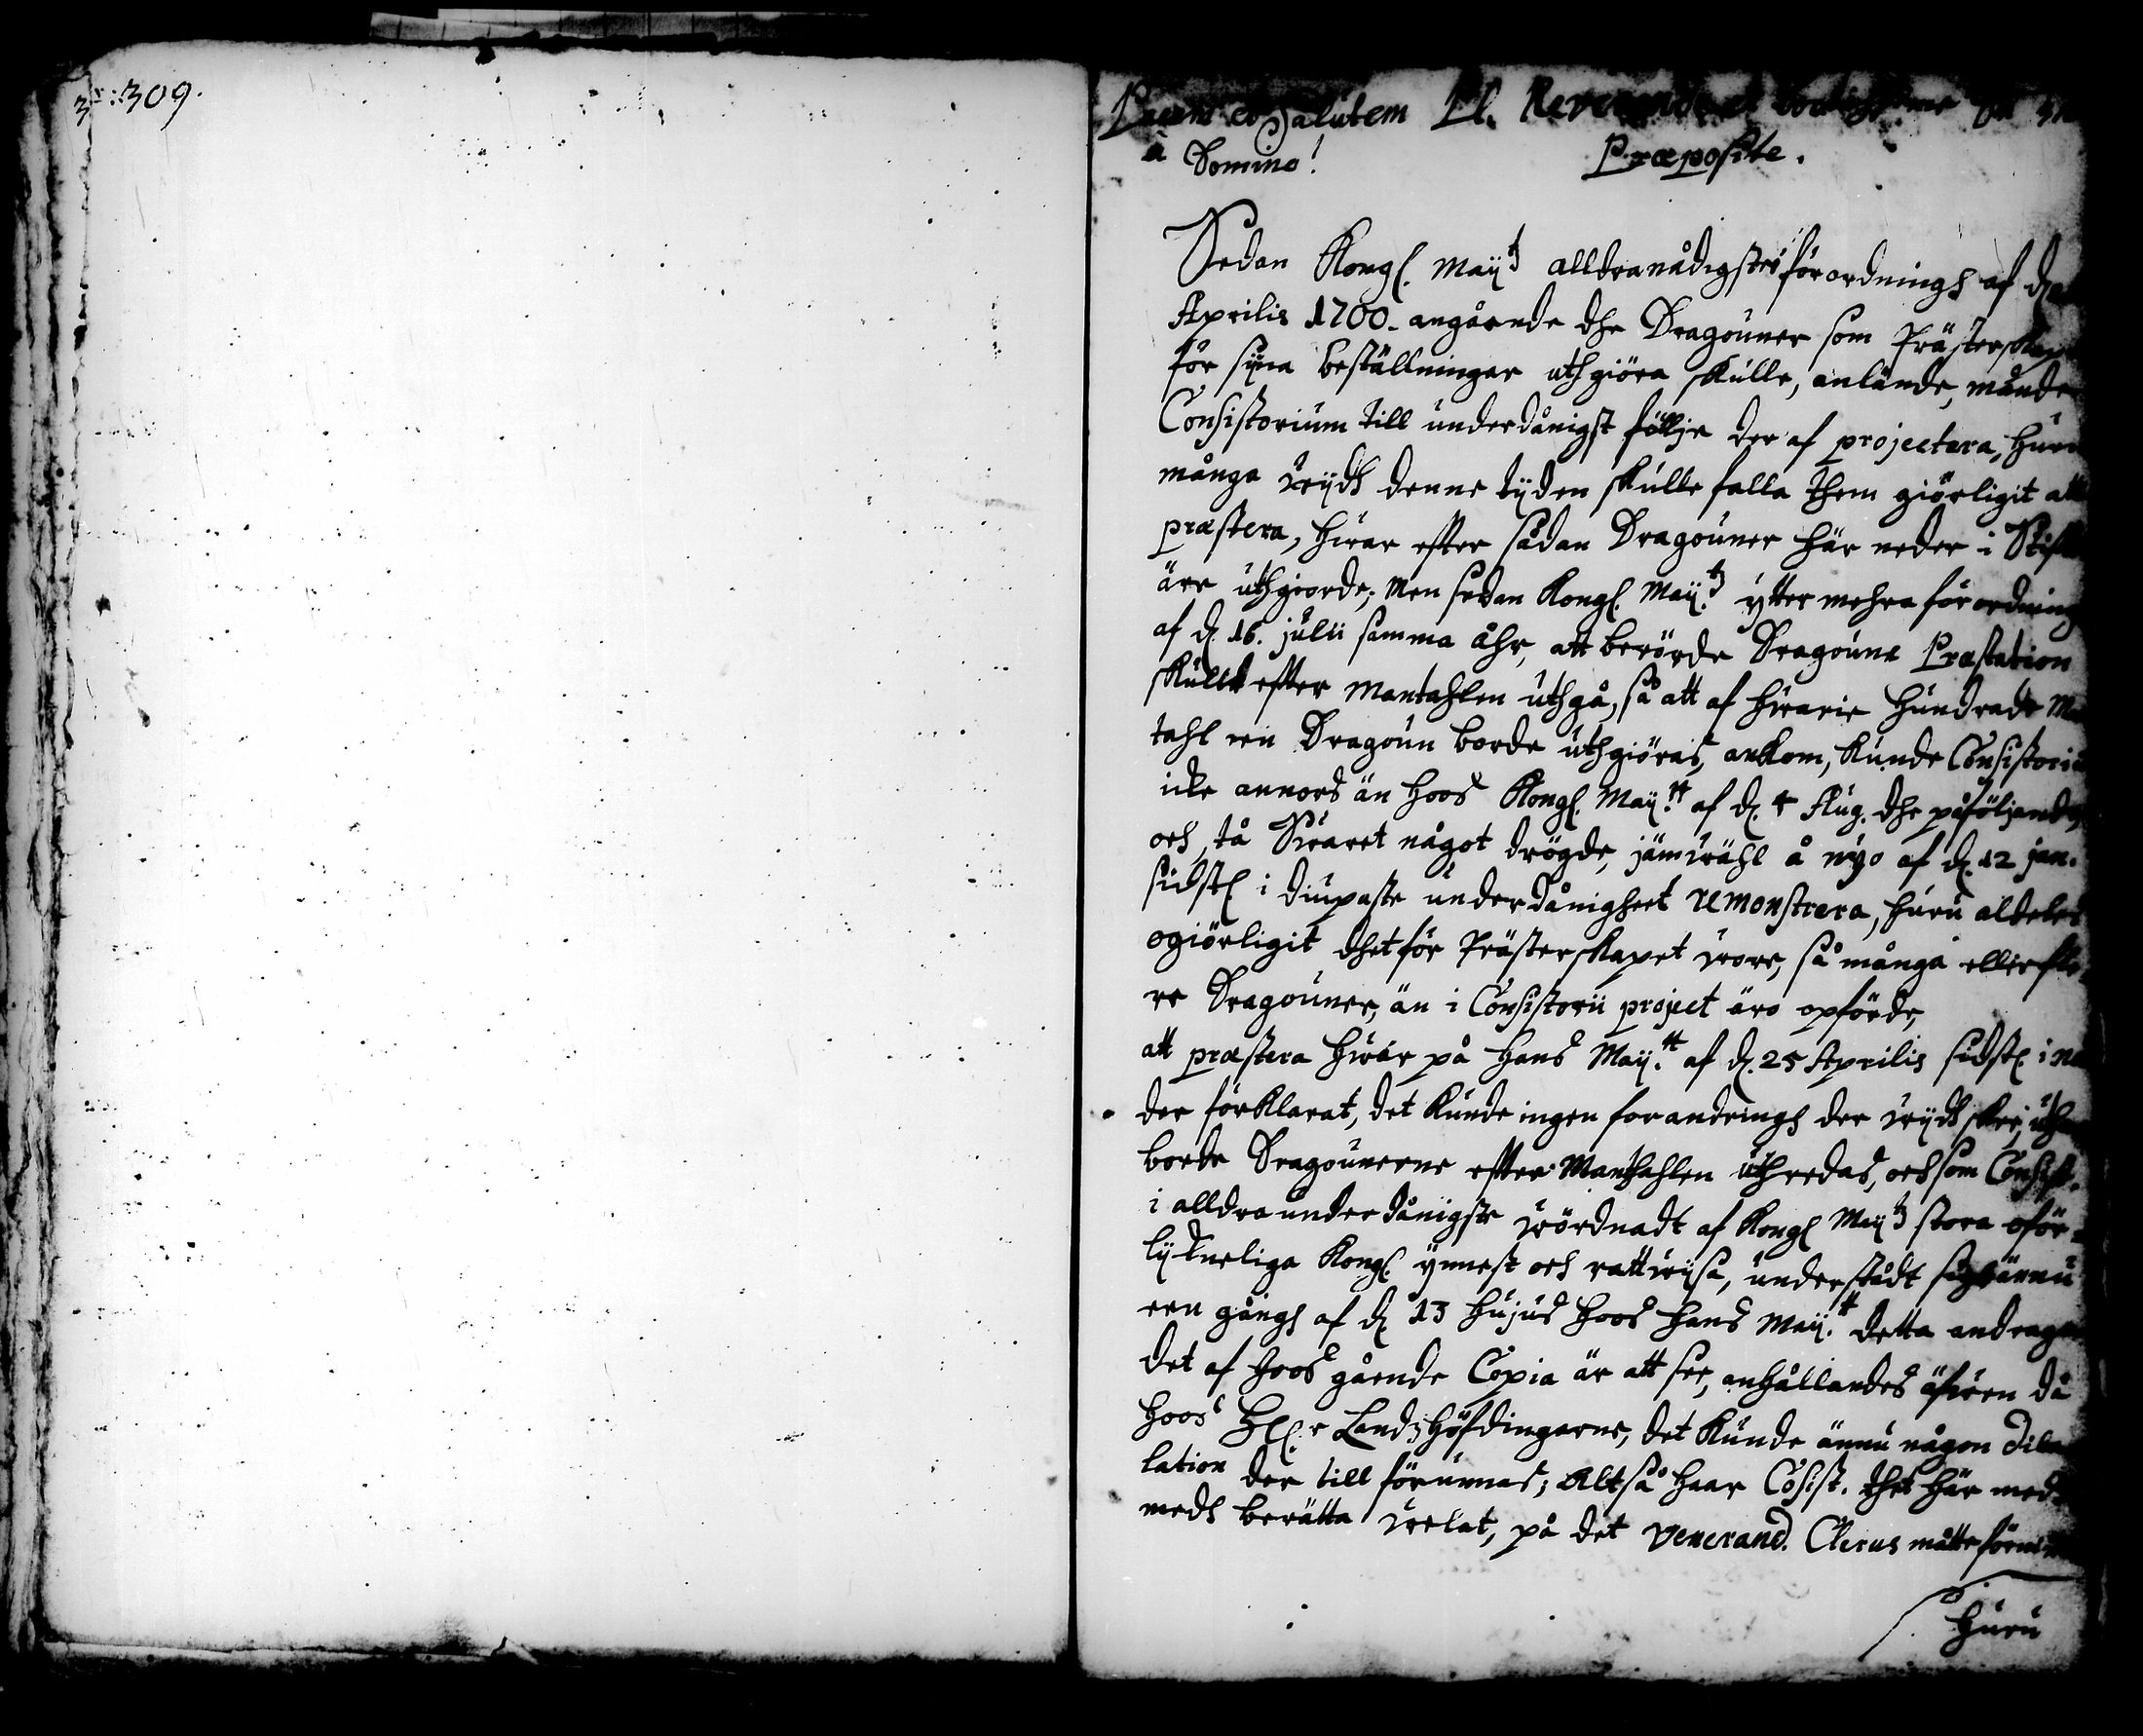 309.
Pacem et Salutem Pl. Reverende et
â Domino! Præposite.
Sedan Kongl. Maij:tz alldranådigste förordningh af d.
Aprilis 1700. angående dhe Dragouner som Prästerskapet
för sijna beställningar uthgiöra skulle, anlände, månde
Consistorium till underdånigst föllje der af projectera, huru
många wijdh denne tijden skulle falla them giörligit att
præstera, hwar effter sådan Dragouner här neder i Stifftet
äre uthgiorde; Men sedan Kongl. Maij:tz ytter mehra förordning
af d. 16. julii samma åhr, att berörde Dragoune Præstation
skulle effter Mantahlen uthgå, så att af hwarie hundrade Man
tahl en Dragoun borde uthgiöras, ankom, kunde Consistorium
icke annors än hoos Kongl. Maij:tt af d. 4 Aug. dhe påföljande,
och, tå Swaret något drögde, jämwähl å nyo af d. 12 jan.
sidstl. i diupaste underdånigheet remonstrera, huru aldeles
ogiörligit dhet för Prästerskapet wore, så många eller fle-
re Dragouner, än i Consistorii project äro opförde,
att præstera hwar på Hans Maij:tt af d. 25 Aprilis sidstl. i
der förklarat, det kunde ingen forandringh der wijdh skee, uthan
borde Dragounerne effter Manthahlen uthredas, och som Consist.
i alldraunderdånigste wördnadt af Kongl Maij:tz stora oför-
lijkneliga Kongl. ynnest och rattwijsa, understådt sigh ännu
een gångh af d. 13 hujus hoos Hans Maij:tt detta andraga
det af hoos gående Copia är att see, anhållandes äfwen då
hoos Hl:r Landzhöfdingarne, det kunde ännu någon dila-
lation der till förunnas; Altså haar Cosist. thet här med-
medh berätta welat, på det Venerand. Clerus måtte förnimma
huru